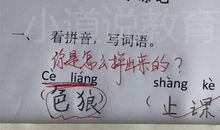 小道说教育
一、看拼音，写词语。
你是怎么拼出来的？
Cè liáng shàng kè
（色狼） （上课